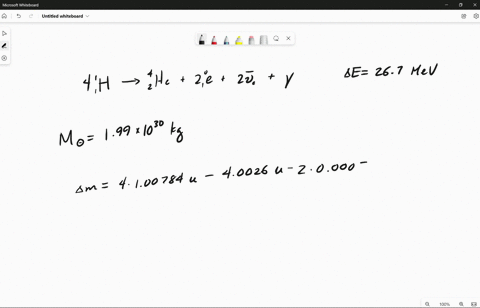 Microsoft Whiteboard
Untitled whiteboard
4 ¹₁H → ⁴₂He + 2 ⁰₁e + 2ν̅₀ + γ ΔE = 26.7 MeV
M⊙ = 1.99 × 10³⁰ kg
Δm = 4 · 1.00784 u − 4.0026 u − 2 · 0.000
100%